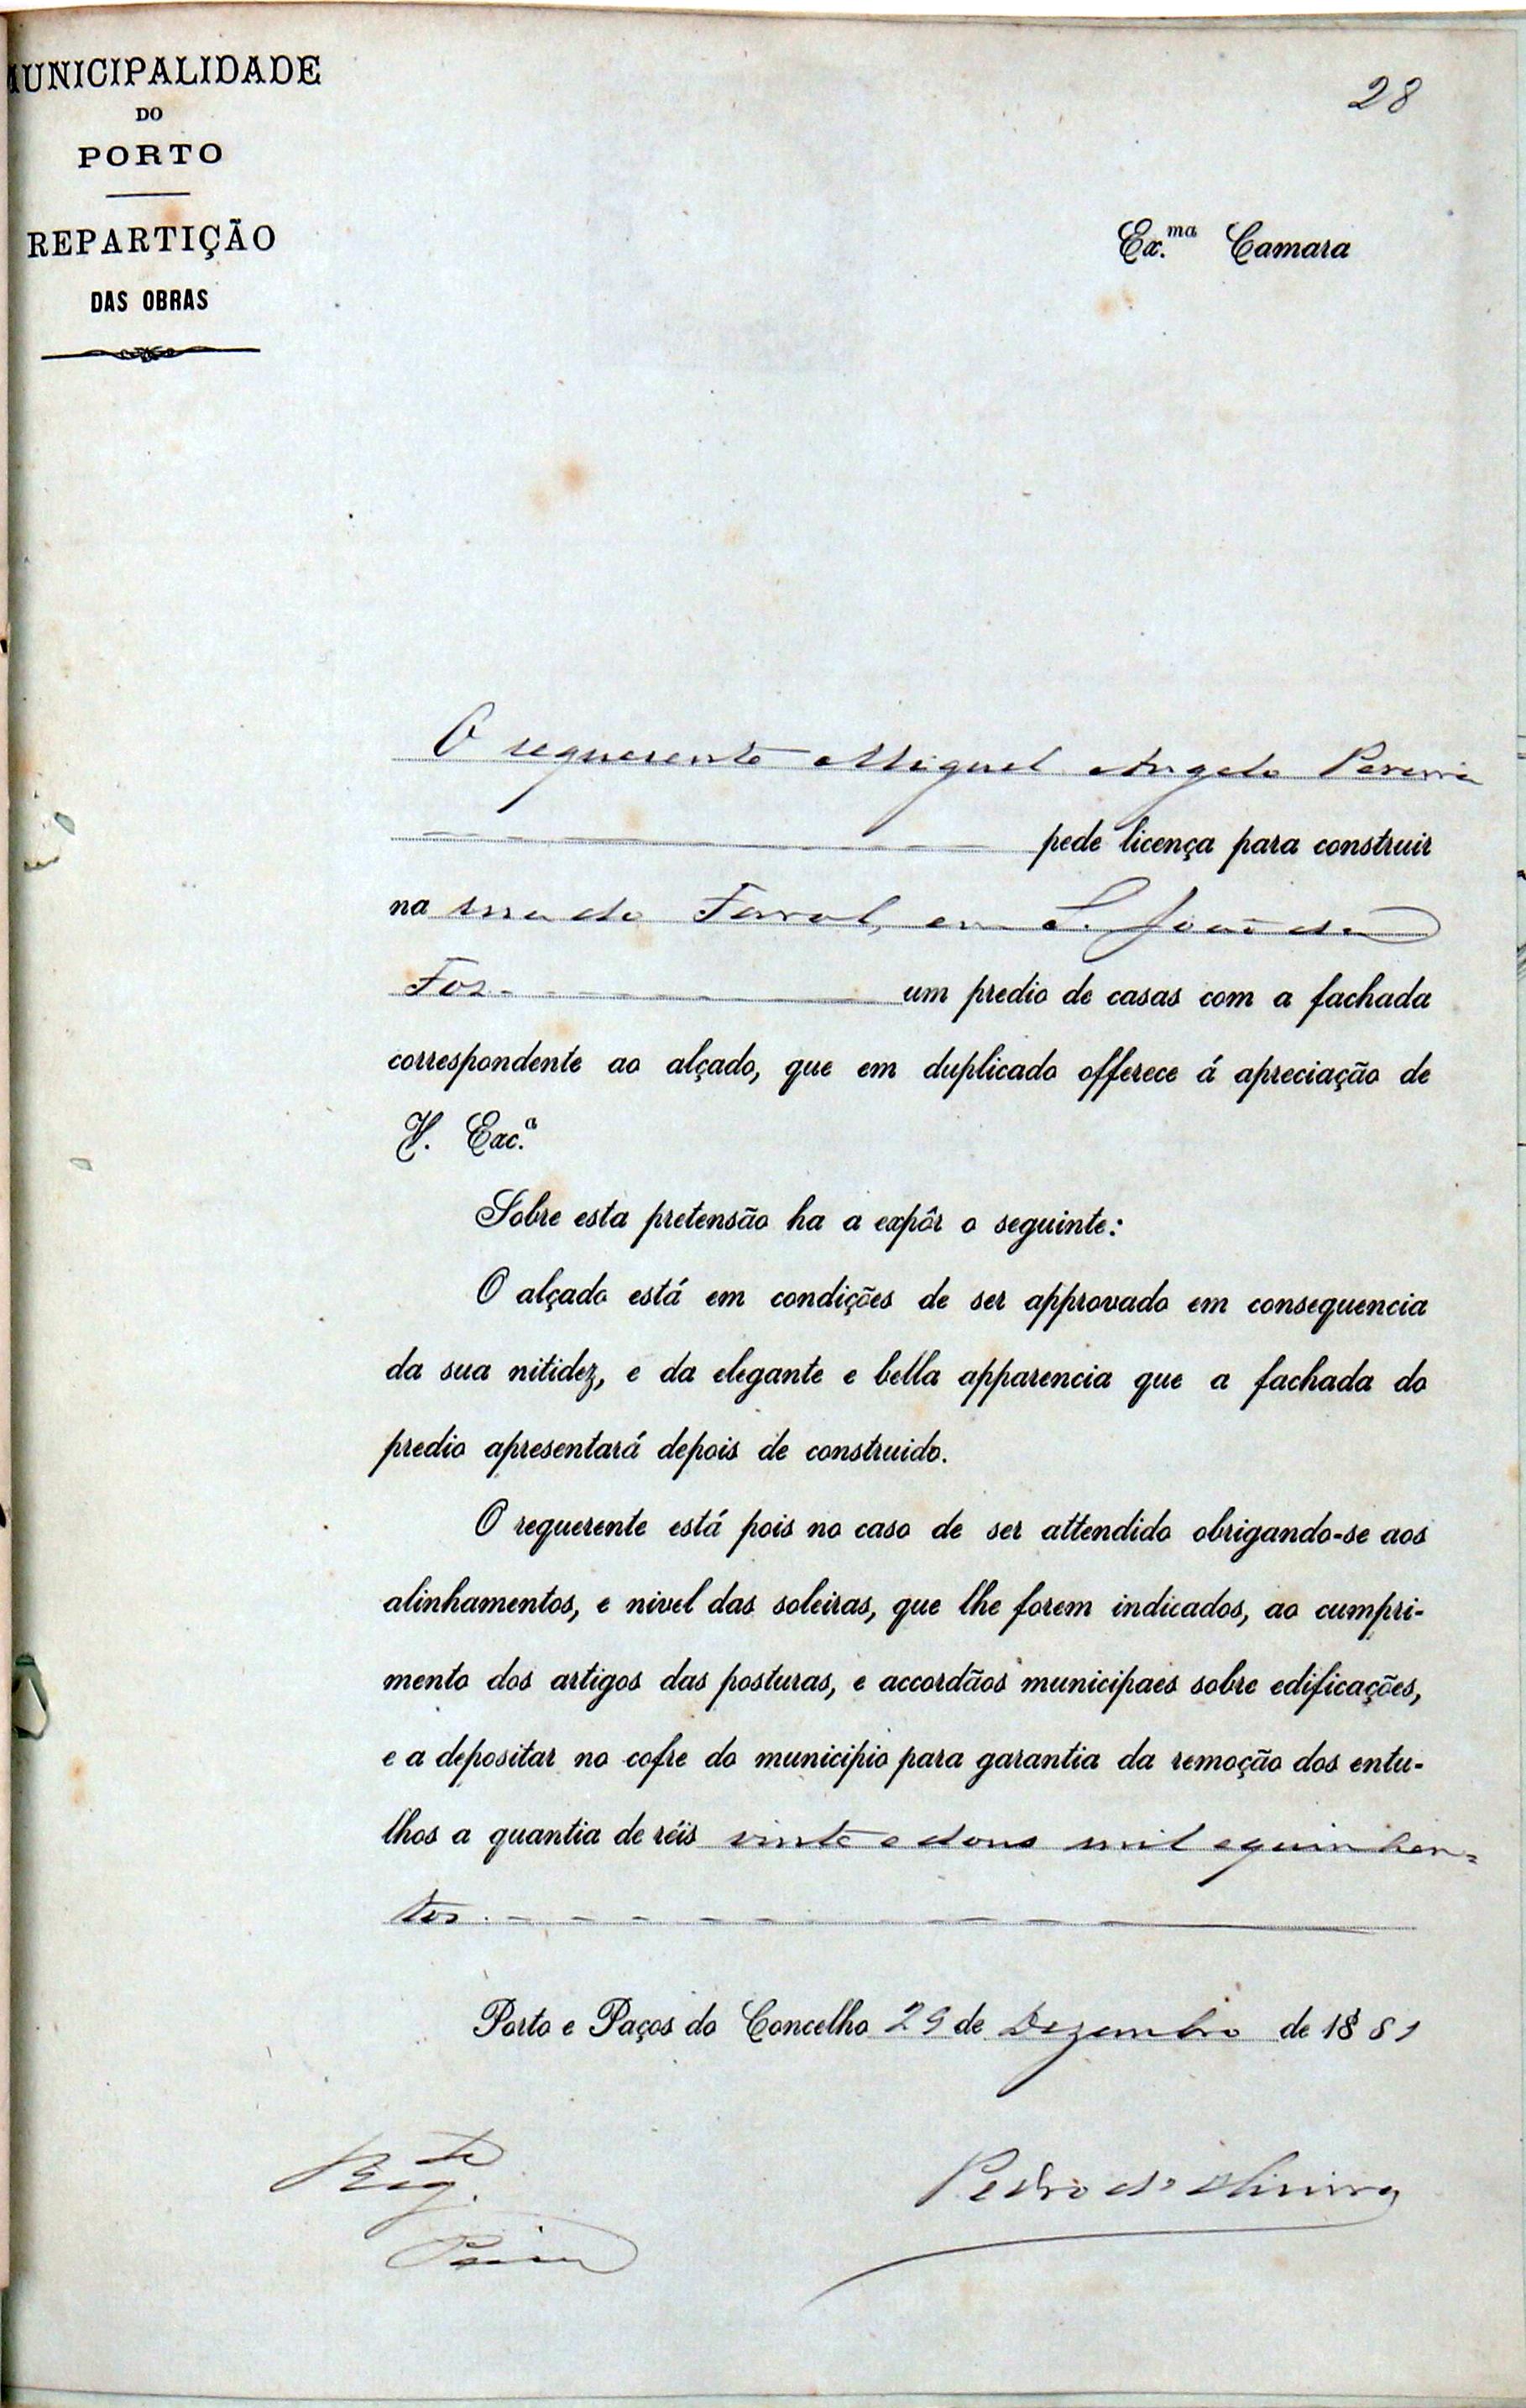 MUNICIPALIDADE
DO
PORTO
REPARTIÇÃO
DAS OBRAS
28
Ex.ma Camara
O requerente Miguel Angelo Pereira
pede licença para construir
na rua do Farol, em S. João da
Foz. um predio de casas com a fachada
correspondente ao alçado, que em duplicado offerece á apreciação de
V. Exc.a
Sobre esta pretensão ha a expôr o seguinte:
O alçado está em condições de ser approvado em consequencia
da sua nitidez, e da elegante e bella apparencia que a fachada do
predio apresentará depois de construido.
O requerente está pois no caso de ser attendido obrigando-se aos
alinhamentos, e nivel das soleiras, que lhe forem indicados, ao cumpri-
mento dos artigos das posturas, e accordãos municipaes sobre edificações,
e a depositar no cofre do municipio para garantia da remoção dos entu-
lhos a quantia de réis vinte e dous mil e quinhen=
tos.
Porto e Paços do Concelho 29 de Dezembro de 1881
Pedro d'Oliveira